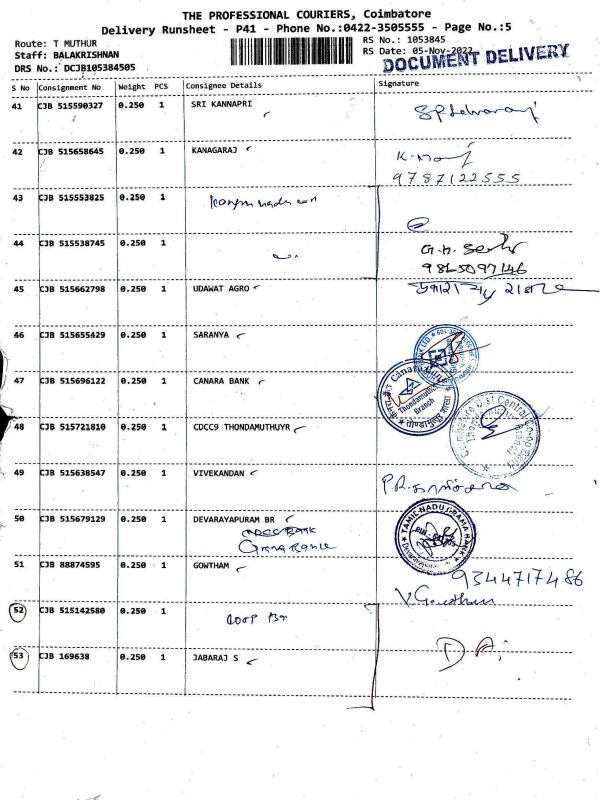 THE PROFESSIONAL COURIERS, Coimbatore
Delivery Runsheet - P41 - Phone No.:0422-3505555 - Page No.:5
Route: T MUTHUR
RS No.: 1053845
Staff: BALAKRISHNAN
RS Date: 05-Nov-2022
DRS No.: DCJB105384505
DOCUMENT DELIVERY
S No Consignment No Weight PCS Consignee Details Signature
41 CJB 515590327 0.250 1 SRI KANNAPRI
42 CJB 515658645 0.250 1 KANAGARAJ
9787122555
43 CJB 515553825 0.250 1
44 CJB 515538745 0.250 1
9865097146
45 CJB 515662798 0.250 1 UDAWAT AGRO
46 CJB 515655429 0.250 1 SARANYA
47 CJB 515696122 0.250 1 CANARA BANK
Canara Bank
Thondamuthur
Branch
48 CJB 515721810 0.250 1 CDCC9 THONDAMUTHUYR
49 CJB 515638547 0.250 1 VIVEKANDAN
50 CJB 515679129 0.250 1 DEVARAYAPURAM BR
TAMIL NADU GRAMA BANK
51 CJB 88874595 0.250 1 GOWTHAM
9344717486
V. Gowtham
52 CJB 515142580 0.250 1
53 CJB 169638 0.250 1 JABARAJ S